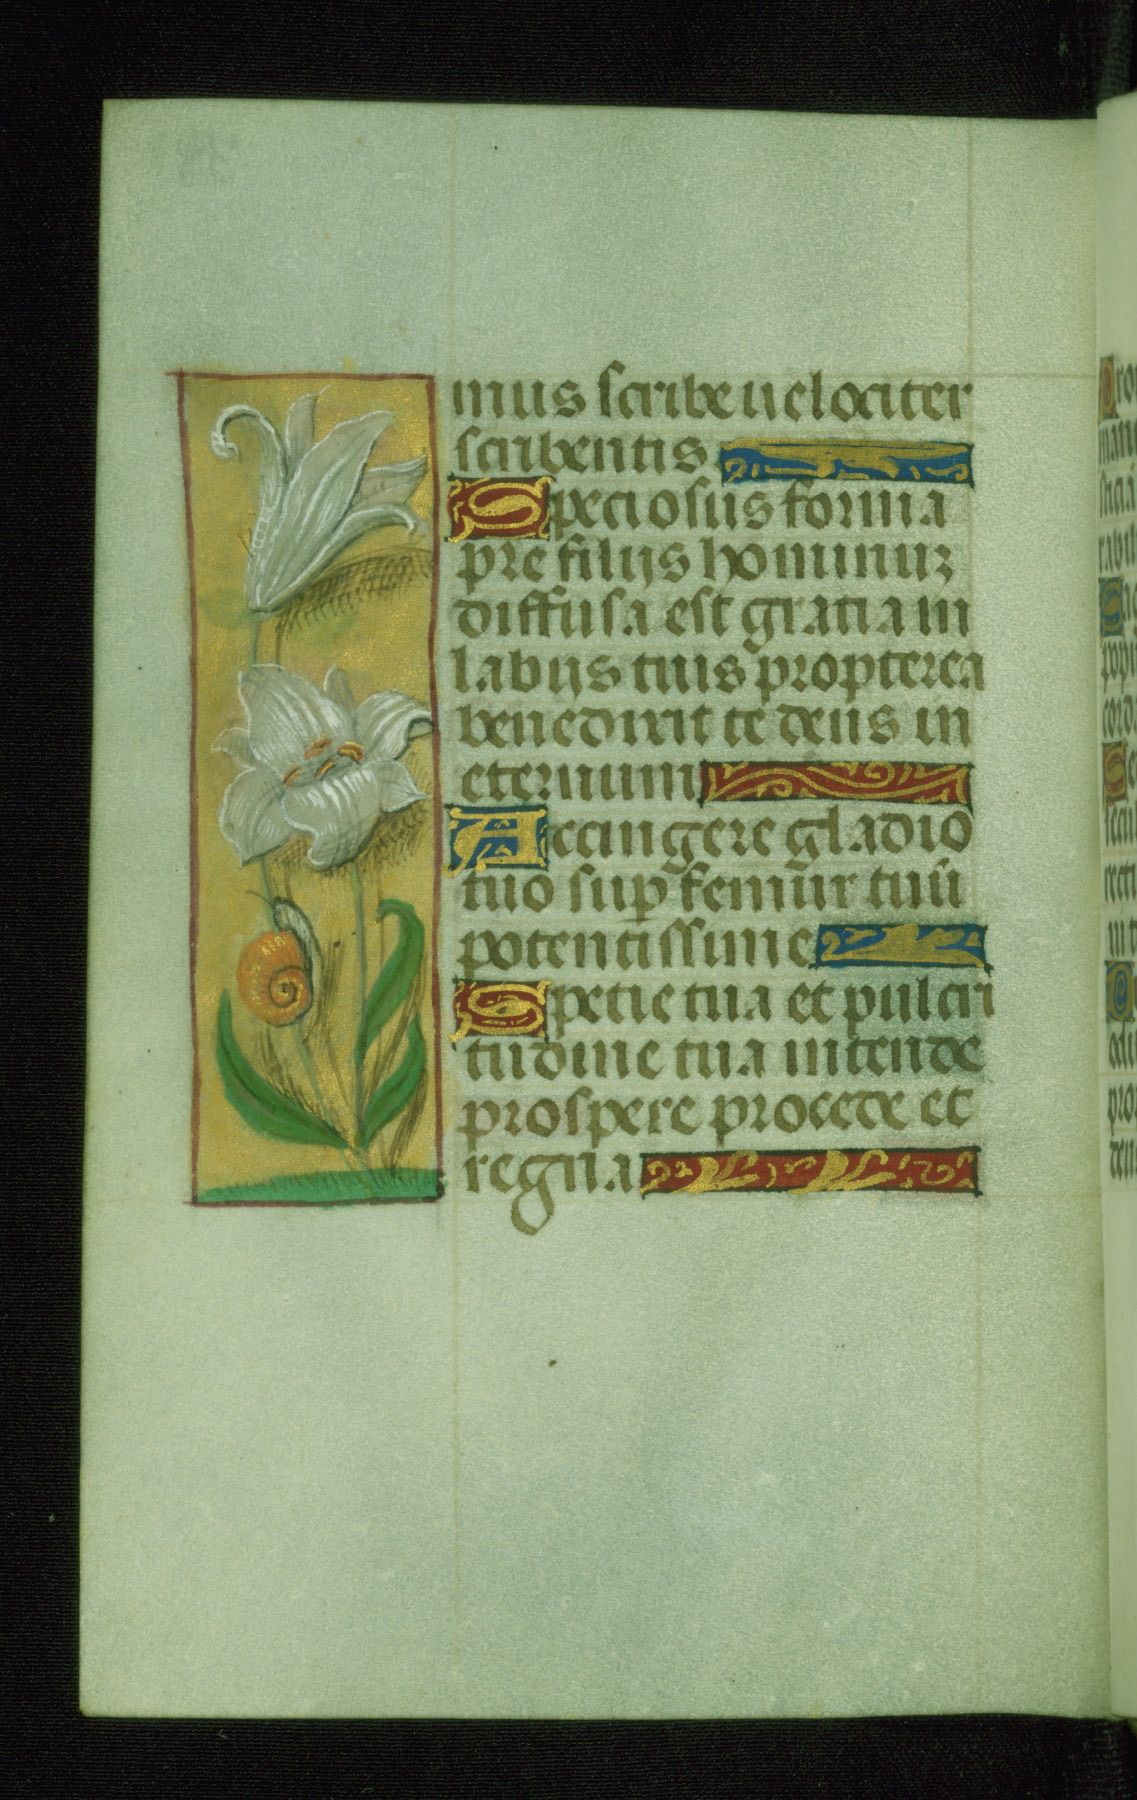 mus scribe uelociter
scribentis
Speciosus forma
pre filijs hominuꝫ
diffusa est gratia in
labijs tuis propterea
benedixit te deus in
eternum
Accingere gladio
tuo suꝑ femur tuū
potentissime
Spetie tua et pulcri
tudine tua intende
prospere procede et
regna